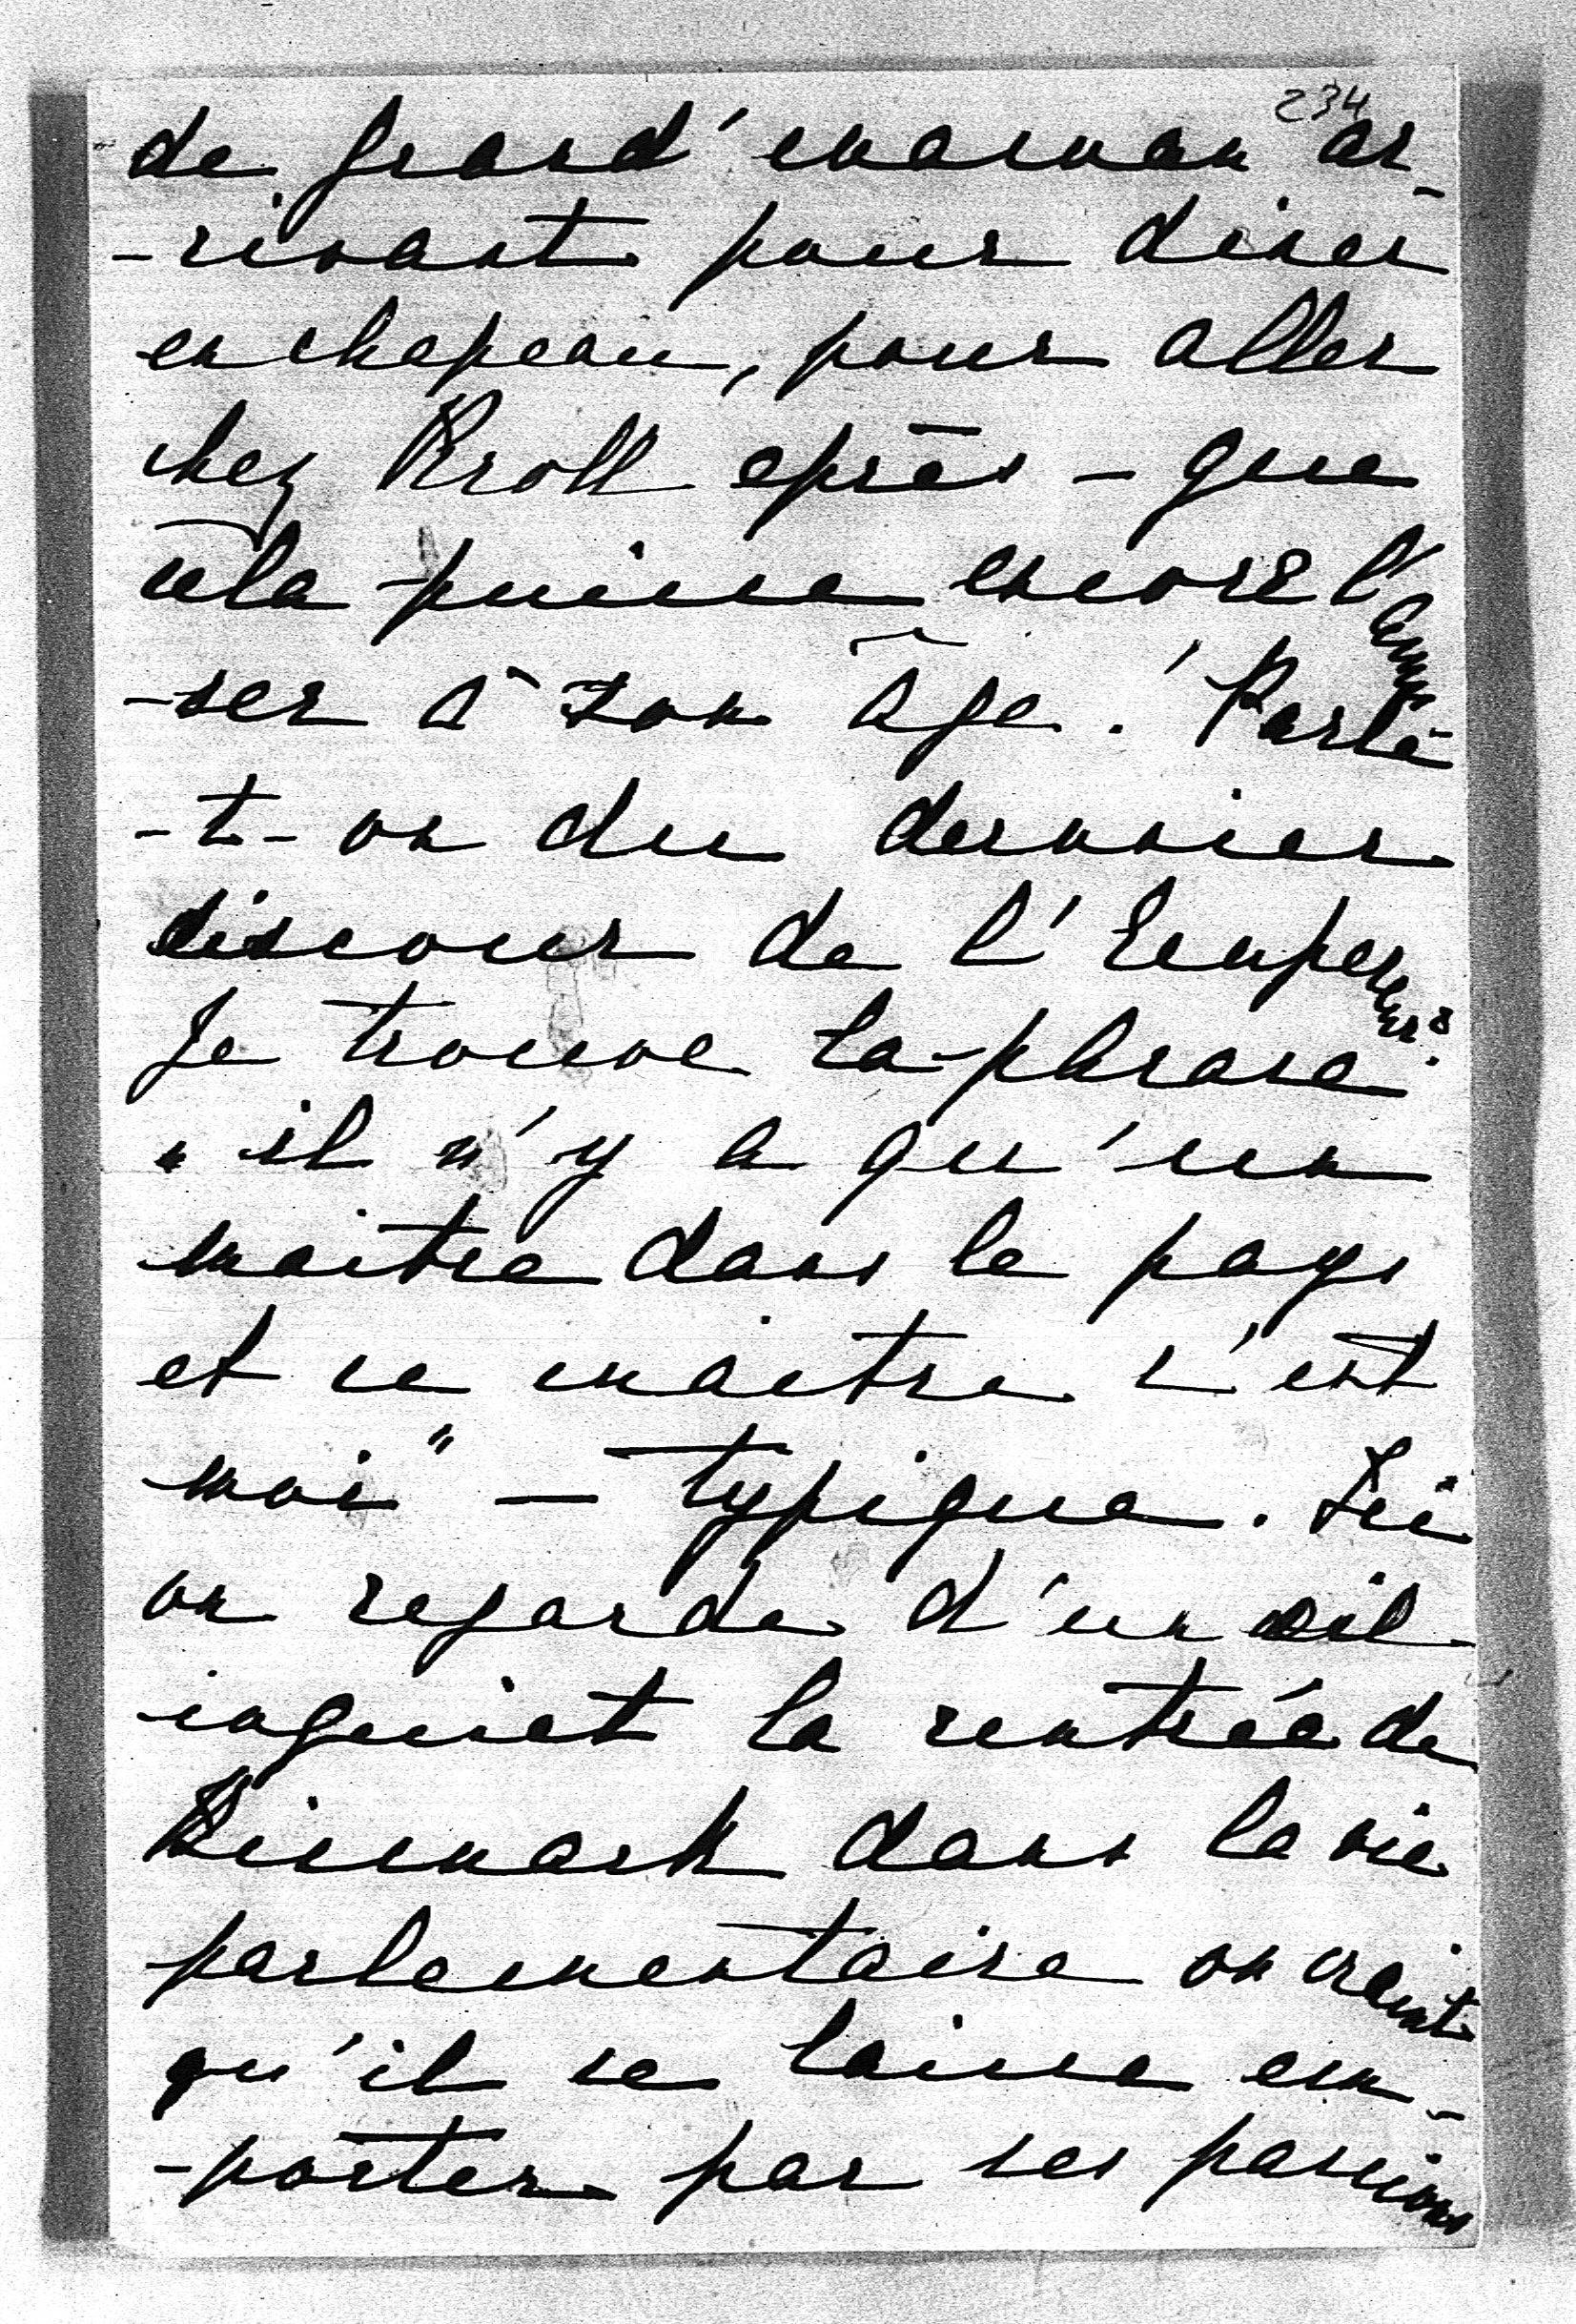 234
de grand'maman ar-
-rivant pour diner
en chapeau, pour aller
chez Kroll après - que
cela puisse encore l'amu-
-ser à son âge! Parle-
-t-on du dernier
discour de l'Empereur?
Je trouve la phrase
"il n'y a qu'un
maitre dans le pays
et ce maitre c'est
moi" — typique. Ici
on regarde d'un œil
inquiet la rentrée de
Bismark dans la vie
parlementaire on craint
qu'il se laisse em-
-porter par ses passions